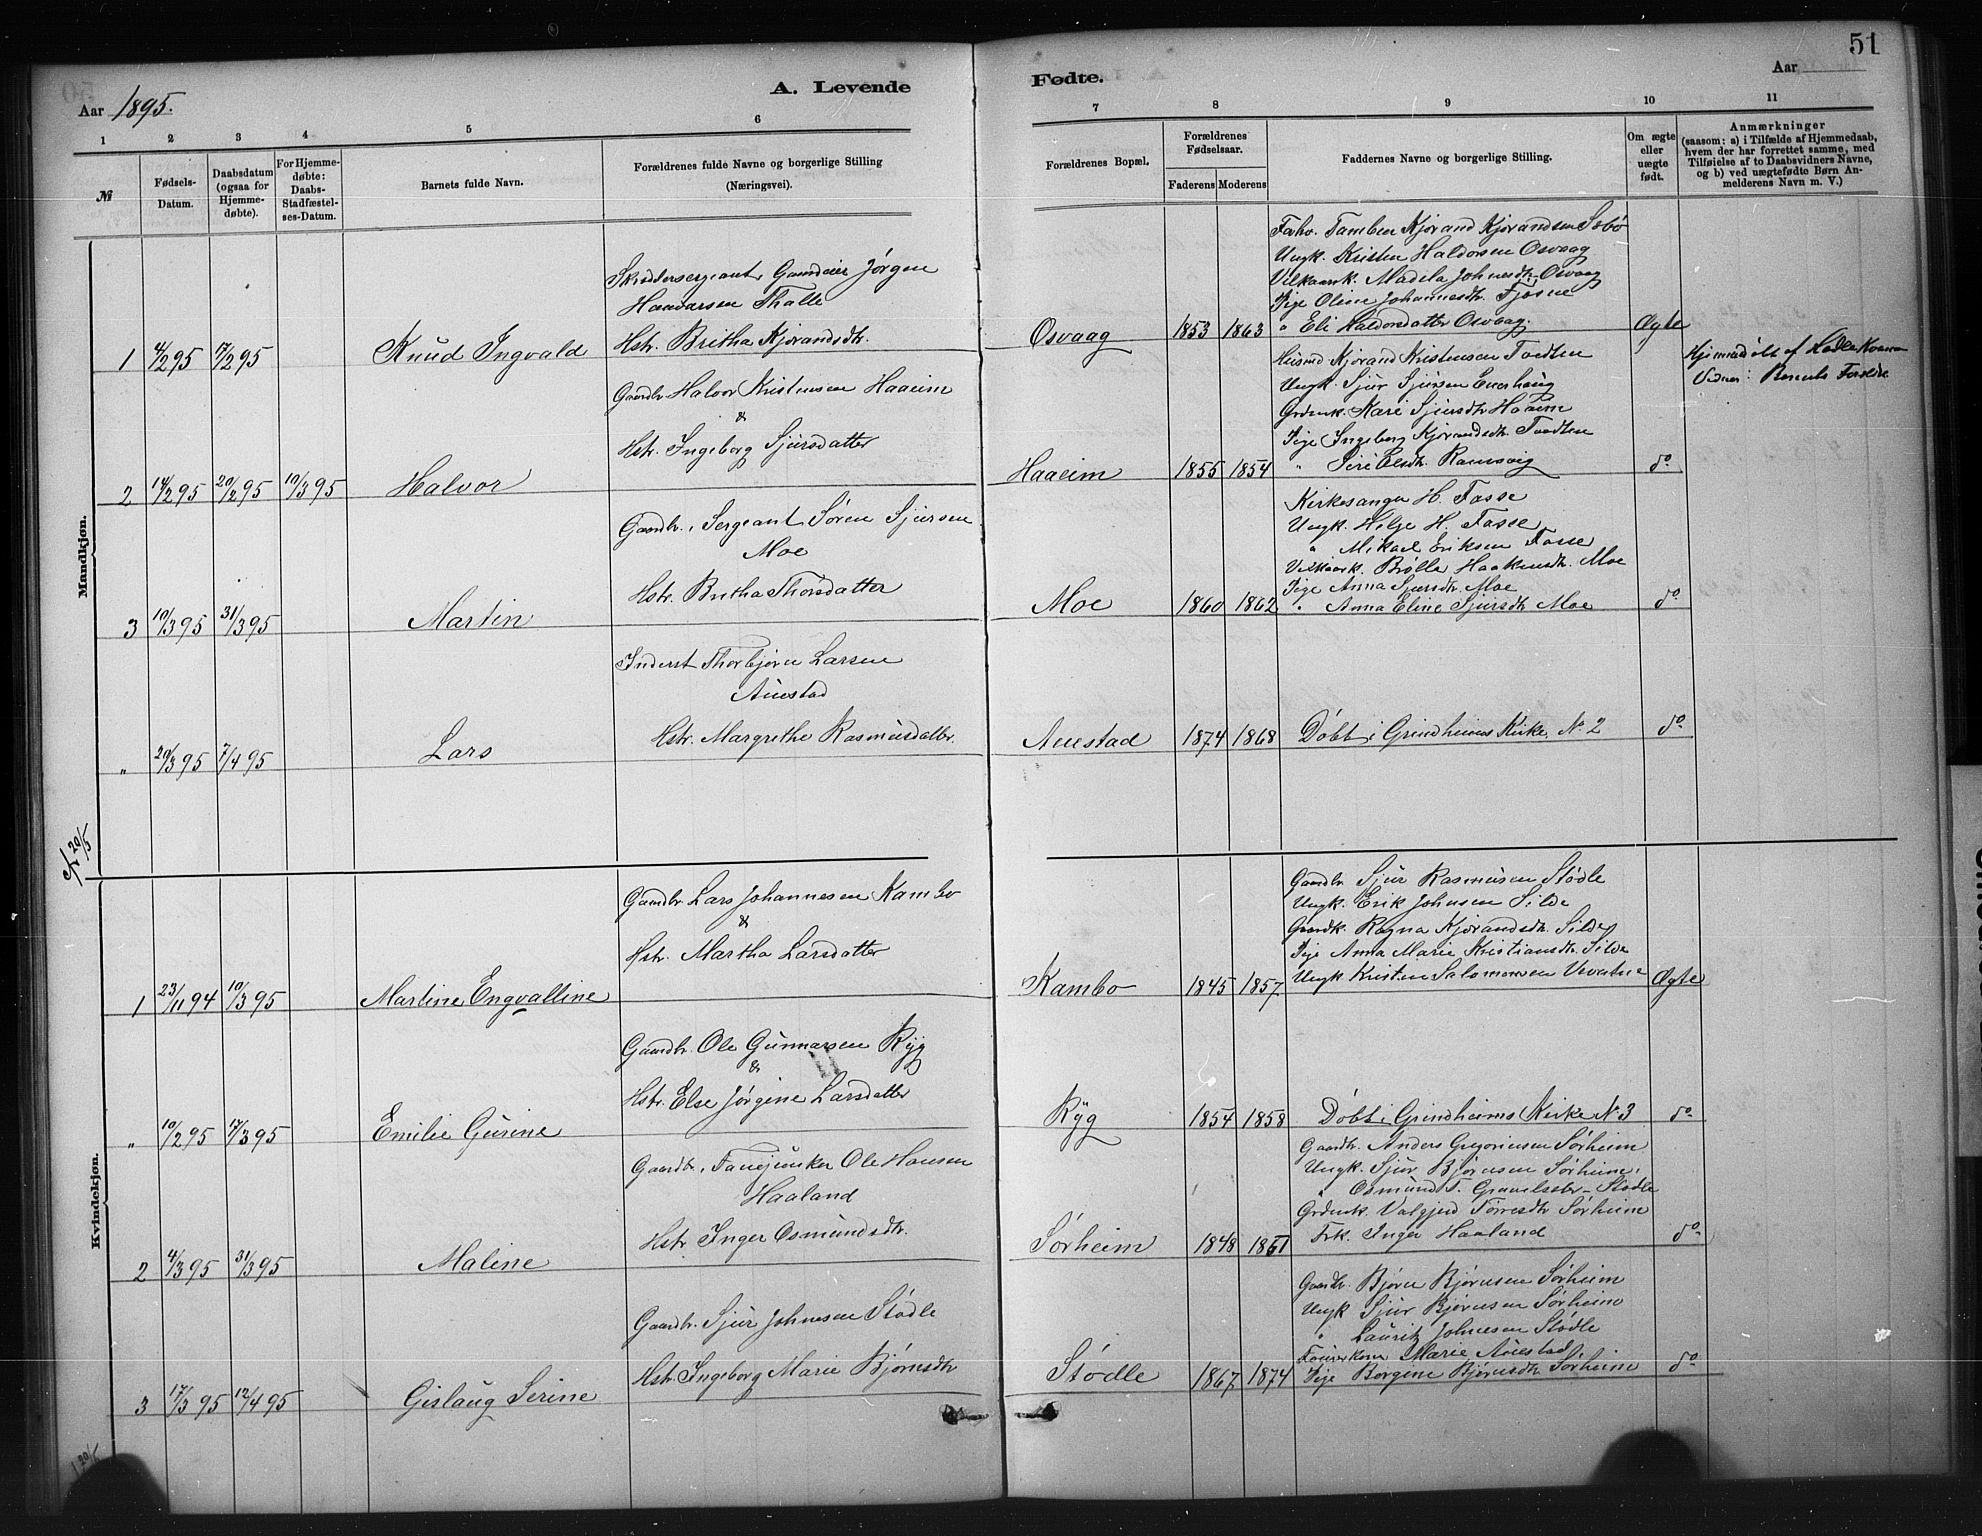 51
A. Levende
Fødte.
Aar 1895.
Aar
1
2
3
4
5
6
7
8
9
10
11
№
Fødsels-
Datum.
Daabsdatum
(ogsaa for
Hjemme-
døbte).
For Hjemme-
døbte:
Daabs-
Stadfæstel-
ses-Datum.
Barnets fulde Navn.
Forældrenes fulde Navne og borgerlige Stilling
(Næringsvei).
Forældrenes Bopæl.
Forældrenes
Fødselsaar.
Faderens
Moderens
Faddernes Navne og borgerlige Stilling.
Om ægte
eller
uægte
født.
Anmærkninger
(saasom: a) i Tilfælde af Hjemmedaab,
hvem der har forrettet samme, med
Tilføielse af to Daabsvidners Navne,
og b) ved uægtefødte Børn An-
melderens Navn m. V.)
Mandkjøn.
1
4/2 95
17/2 95
Knud Ingvald
Gaardeier Jørgen
Haavarsen Thalle
Hstr. Britha Kjorandsdtr.
Osvaag
1853
1863
Kjorand Kjorandsen Sæbø
Ungk. Kristen Haldorsen Osvaag
Madela Johnesdtr. Osvaag
Pige Oline Johannesdtr. Fjøsne
" Eli Haldorsdatter Osvaag.
Ægte
2
14/2 95
20/2 95
10/3 95
Halvor
Gaardbr. Halvor Kristensen Haaeim
&
Hstr. Ingeborg Sjursdatter
Haaeim
1855
1854
Husmd Kjorand Kristensen Tvedten
Ungk. Sjur Sjursen
Grdmk. Kari Sjursdtr Haaeim
Pige Ingeborg Kjorandsdtr. Tvedten
" Siri Elsdtr. Ramsvig
do
Hjemmedøbt af
Vidner: Barnets Forældre
3
10/3 95
31/3 95
Martin
Gaardbr., Sergeant Søren Sjursen
Moe
Hstr. Britha Thorsdatter
Moe
1860
1862
Kirkesanger H. Fosse
Ungk. Helge H. Fosse
" Mikael Eriksen Fosse
Haakensdtr. Moe
Pige Anna Sjursdtr. Moe
" Anna Eline Sjursdtr Moe
do
"
29/3 95
7/4 95
Lars
Inderst Thorbjørn Larsen
Auestad
Hstr. Margrethe Rasmusdatter.
Auestad
1874
1868
Døbt i Grindheims Kirke No 2
do
20/5
Kvindekjøn.
1
23/11 94
10/3 95
Martine Engvalline
Gaardbr. Lars Johannesen Kambo
&
Hstr. Martha Larsdatter
Kambo
1845
1857
Gaardbr. Sjur Rasmusen Stødle
Ungk. Erik Johnsen Silde
Gaardk. Ragna Kjorandsdtr. Silde
Pige Anna Marie Kristiansdtr. Silde
Ungk Kristen Salomonsen
Ægte
"
10/2 95
17/3 95
Emilie Gurine
Gaardbr. Ole Gunnarsen Ryg
&
Hstr. Else Jørgine Larsdatter
Ryg
1854
1858
Døbt i Grindheims Kirke No 3
do
2
4/3 95
31/3 95
Maline
Gaardbr., Fanejunker Ole Hansen
Haaland
Hstr Inger Osmundsdtr.
Sørheim
1848
1861
Gaardbr. Anders Gregoriusen Sørheim
Ungk. Sjur Bjørnsen Sørheim,
" Osmund T. Stødle
Grdmk. Valgjerd Torresdtr Sørheim
Frk. Inger Haaland
do
3
17/3 95
12/4 95
Gislaug Serine
Gaardbr. Sjur Johnesen Stødle
Hstr. Ingeborg Marie Bjørnsdtr
Stødle
1867
1874
Gaardbr. Bjørn Bjørnsen Sørheim
Ungk Sjur Bjørnsen Sørheim
" Lauritz Johnesen Stødle
Marie Auestad,
Pige Borgene Bjørnsdtr Sørheim
do
20/5